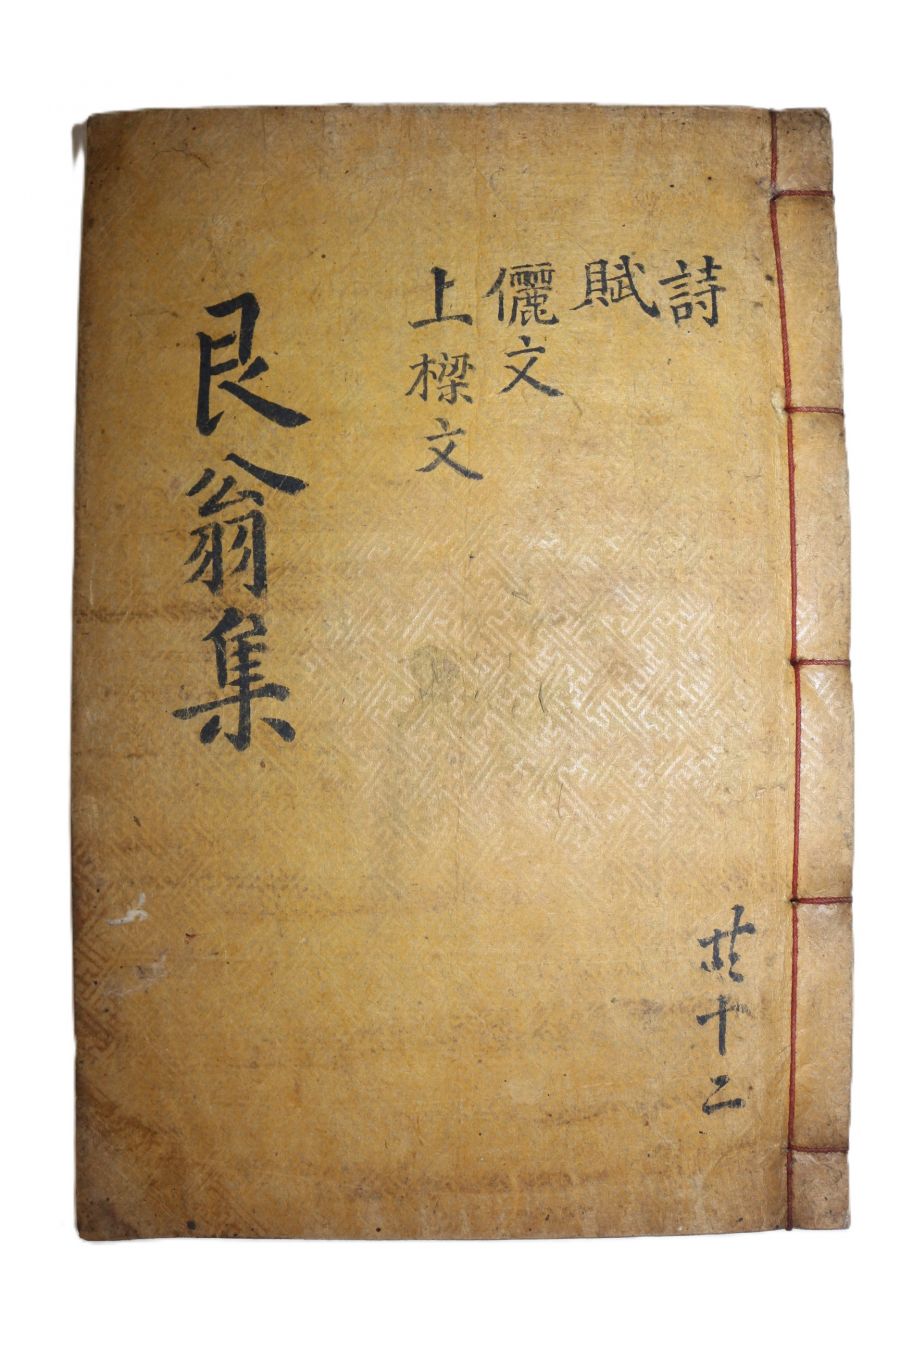 詩
賦
儷文
上樑文
艮翁集
共十二